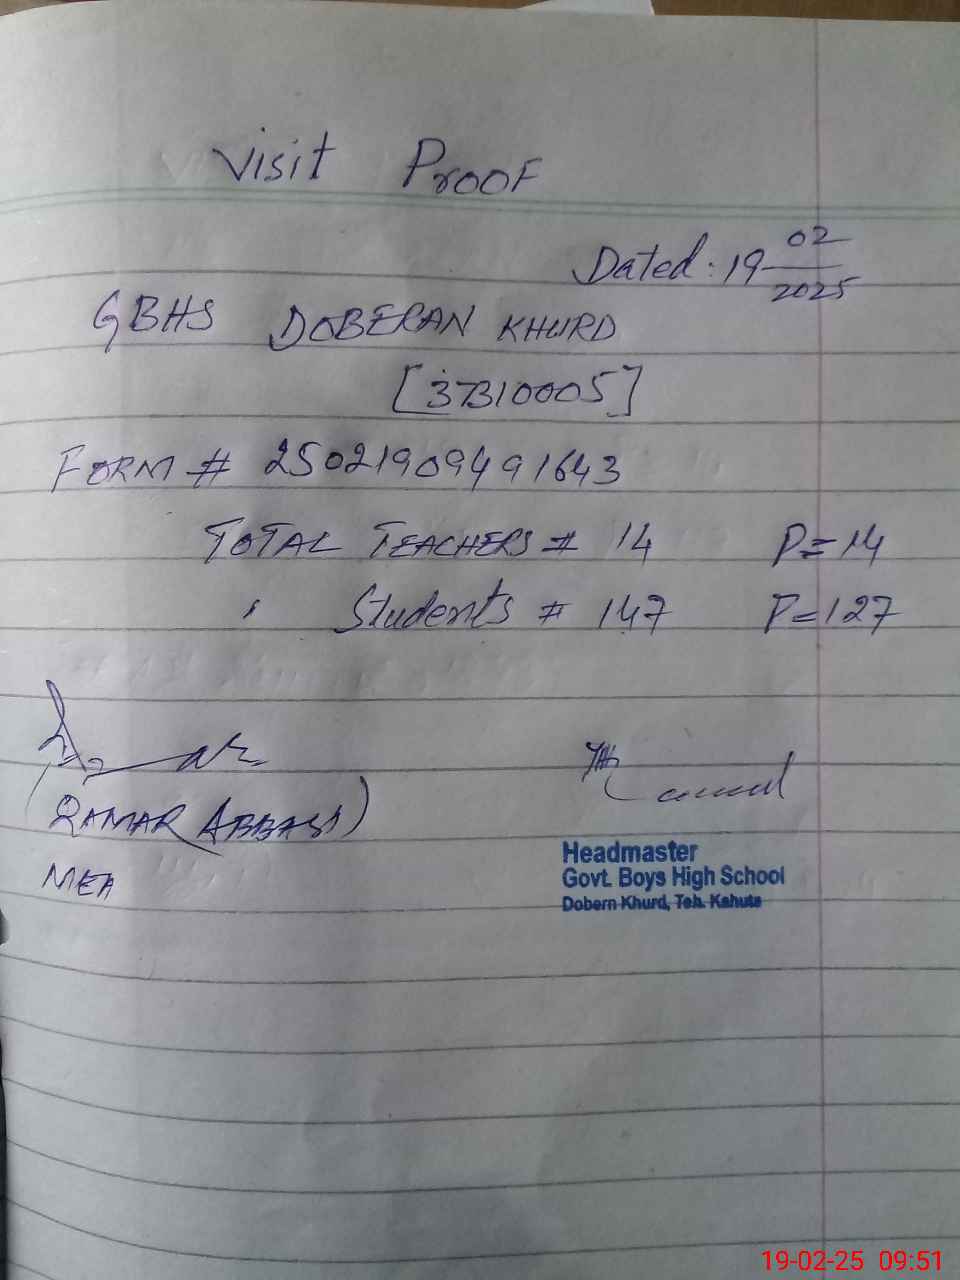 Visit Proof
Dated: 19 02/2025
GBHS DOBERAN KHURD
[37310005]
FORM # 25021909491643
TOTAL TEACHERS # 14 P=14
" Students # 147 P=127
(QAMAR ABBASI)
MEA
Headmaster
Govt. Boys High School
Dobern Khurd, Teh. Kahuta
19-02-25 09:51